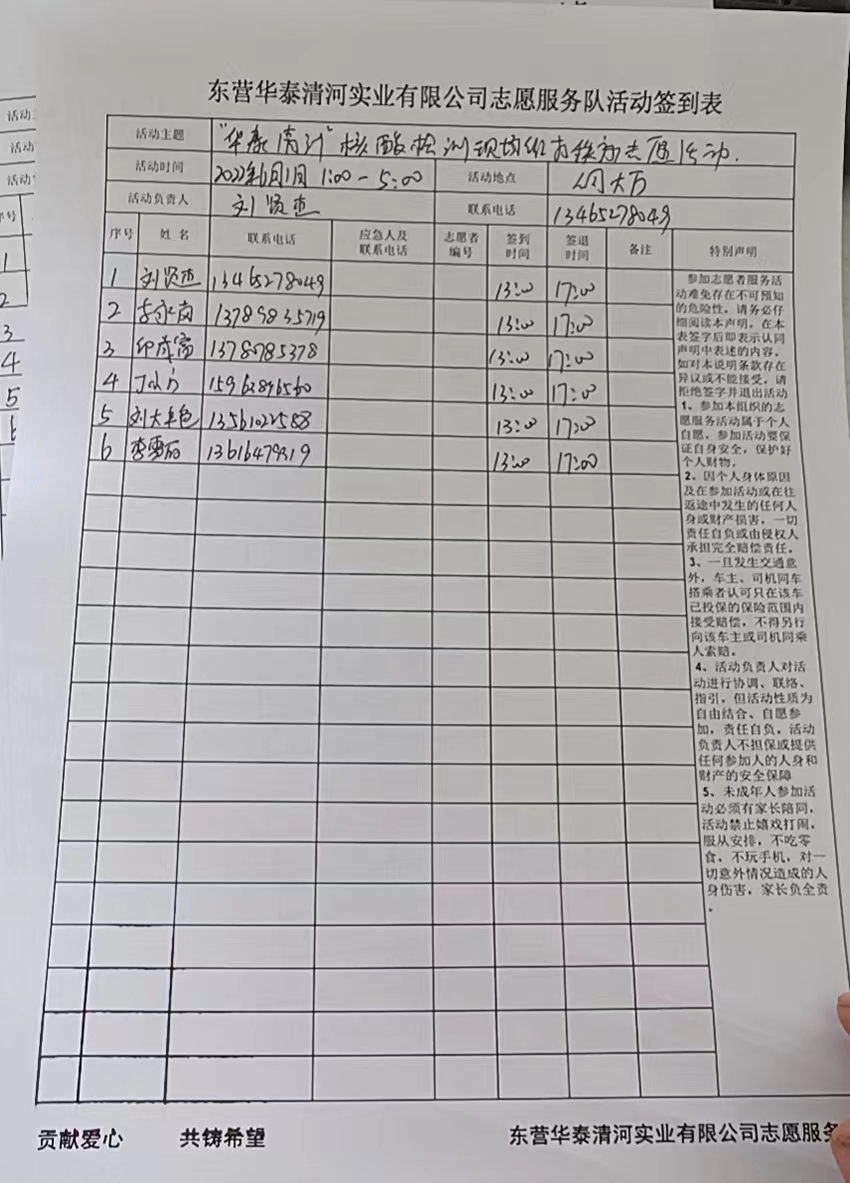 东营华泰清河实业有限公司志愿服务队活动签到表
活动主题 "华泰清河"核酸检测现场维持秩序志愿活动.
活动时间 2022年6月1月 1:00-5:00 活动地点
活动负责人 刘贤杰 联系电话 13465278049
序号 姓名 联系电话 应急人及联系电话 志愿者编号 签到时间 签退时间 备注 特别声明
1 刘贤杰 13465278049 13:00 17:00
2 13789835719 13:00 17:00
3 13780785378 13:00 17:00
4 15963896560 13:00 17:00
5 13561022588 13:00 17:00
6 李雪 13616479319 13:00 17:00
参加志愿者服务活
动难免存在不可预知
的危险性，请务必仔
细阅读本声明，在本
表签字后即表示认同
声明中表述的内容。
如对本说明条款存在
异议或不能接受，请
拒绝签字并退出活动
1、参加本组织的志
愿服务活动属于个人
自愿，参加活动要保
证自身安全，保护好
个人财物。
2、因个人身体原因
及在参加活动或在往
返途中发生的任何人
身或财产损害，一切
责任自负或由侵权人
承担完全赔偿责任。
3、一旦发生交通意
外，车主、司机同车
搭乘者认可只在该车
已投保的保险范围内
接受赔偿，不得另行
向该车主或司机同乘
人索赔。
4、活动负责人对活
动进行协调、联络、
指引，但活动性质为
自由结合、自愿参
加，责任自负。活动
负责人不担保或提供
任何参加人的人身和
财产的安全保障
5、未成年人参加活
动必须有家长陪同，
活动禁止嬉戏打闹，
服从安排，不吃零
食，不玩手机，对一
切意外情况造成的人
身伤害，家长负全责
。
贡献爱心 共铸希望 东营华泰清河实业有限公司志愿服务